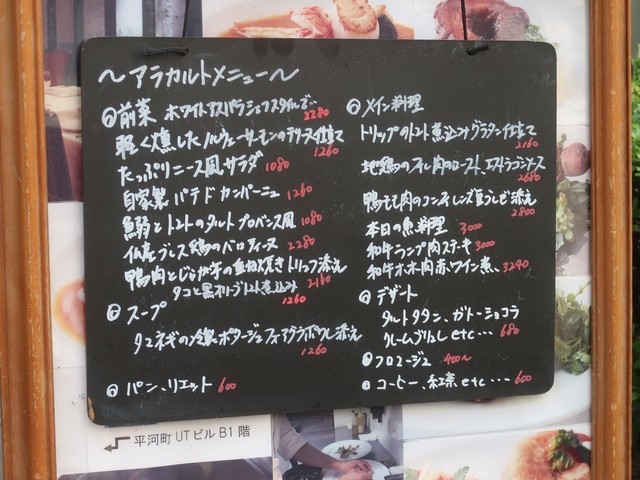 ～アラカルトメニュー～
前菜 ホワイトアスパラシェフスタイルで… 2280
軽く燻したノルウェーサーモンのテリーヌ仕立て 1260
たっぷりニース風サラダ 1080
自家製パテドカンパーニュ 1260
鰯とトマトのタルトプロバンス風 1080
仏産ブレス鶏のバロティーヌ 2280
鴨肉とじゃが芋の重ね焼きトリュフ添え 2160
タコと黒オリーブトマト煮込み 1260
スープ
タマネギの冷製ポタージュフォアグラボワレ添え 1260
パン、リエット 600
メイン料理
トリップのトマト煮込みグラタン仕立て 2160
地鶏のフィレ肉のロースト、エストラゴンソース 2680
鴨もも肉のコンフィ、レンズ豆うしゼ添え 2800
本日の魚料理 3000
和牛ランプ肉ステーキ 3000
和牛ホホ肉赤ワイン煮、3240
デザート
タルトタタン、ガトーショコラ
クレームブリュレ etc… 680
フロマージュ 400〜
コーヒー、紅茶 etc… 600
平河町 UTビル B1 階